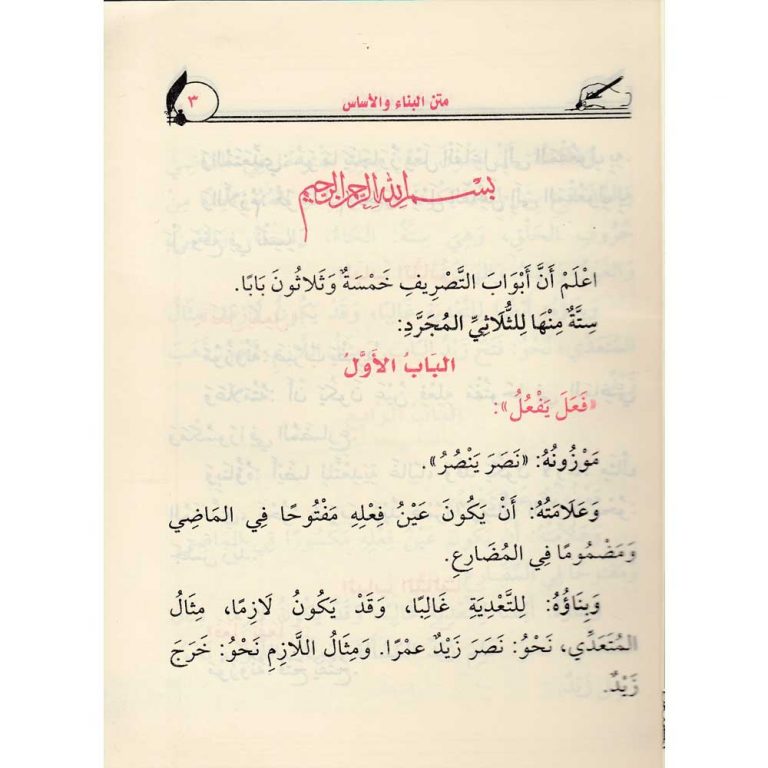 متن البناء والأساس
٣
بسم الله الرحمن الرحيم
اعْلَمْ أَنَّ أَبْوَابَ التَّصْرِيفِ خَمْسَةٌ وَثَلَاثُونَ بَابًا.
سِتَّةٌ مِنْهَا لِلثُّلَاثِيِّ المُجَرَّدِ:
البَابُ الأَوَّلُ
«فَعَلَ يَفْعُلُ»:
مَوْزُونُهُ: «نَصَرَ يَنْصُرُ».
وَعَلَامَتُهُ: أَنْ يَكُونَ عَيْنُ فِعْلِهِ مَفْتُوحًا فِي المَاضِي
وَمَضْمُومًا فِي المُضَارِعِ.
وَبِنَاؤُهُ: لِلتَّعْدِيَةِ غَالِبًا، وَقَدْ يَكُونُ لَازِمًا، مِثَالُ
المُتَعَدِّي، نَحْوُ: نَصَرَ زَيْدٌ عمْرًا. وَمِثَالُ اللَّازِمِ نَحْوُ: خَرَجَ
زَيْدٌ.